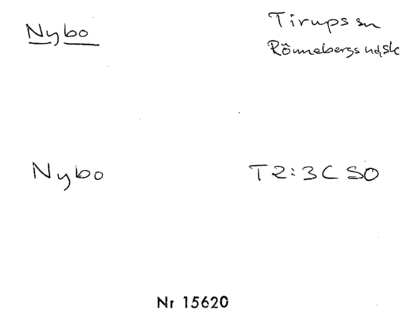 Nybo
Tirups sn
Rönnebergs hd, Sk
Nybo
T2:3C SO
Nr 15620